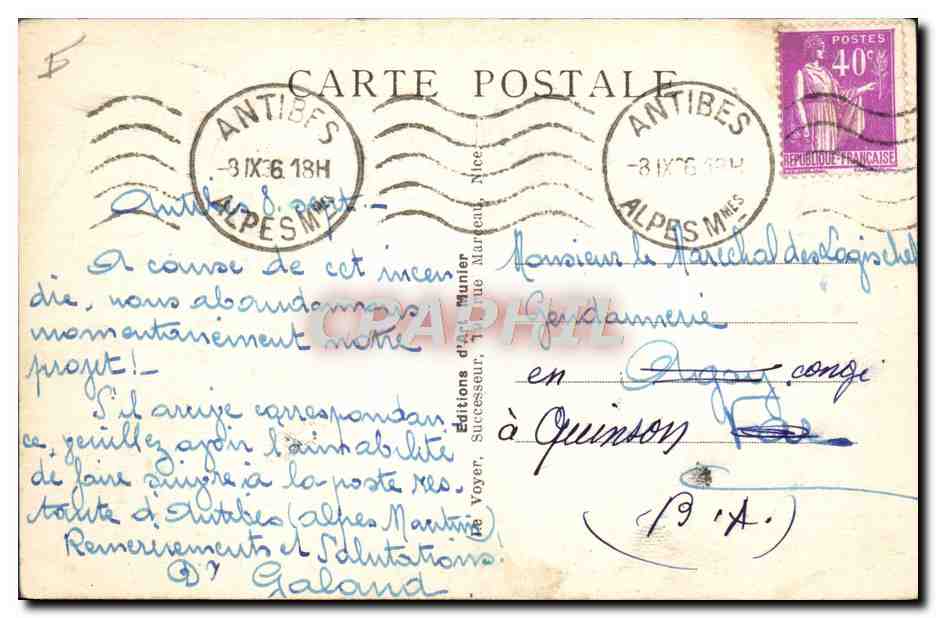 CARTE POSTALE
POSTES
40c
RÉPUBLIQUE FRANÇAISE
ANTIBES
-8 IX 36 18H
ALPES Mmes
ANTIBES
-8 IX 36 18H
ALPES Mmes
Antibes 8 sept.-
A cause de cet incen
die, nous abandonnons
momentanément notre
projet!-
S'il arrive correspondan
ce, veuillez avoir l'amabilité
de faire suivre à la poste res-
tante d'Antibes (Alpes Maritim)
Remerciements et Salutations!
Dr Galand
Editions d'Art Munier
Le Voyer, Successeur, rue Marceau, Nice
Monsieur le Maréchal des Logis chef
Gendarmerie
en Agay congé
à Quinson Var
(B.A.)
CPAPHIL